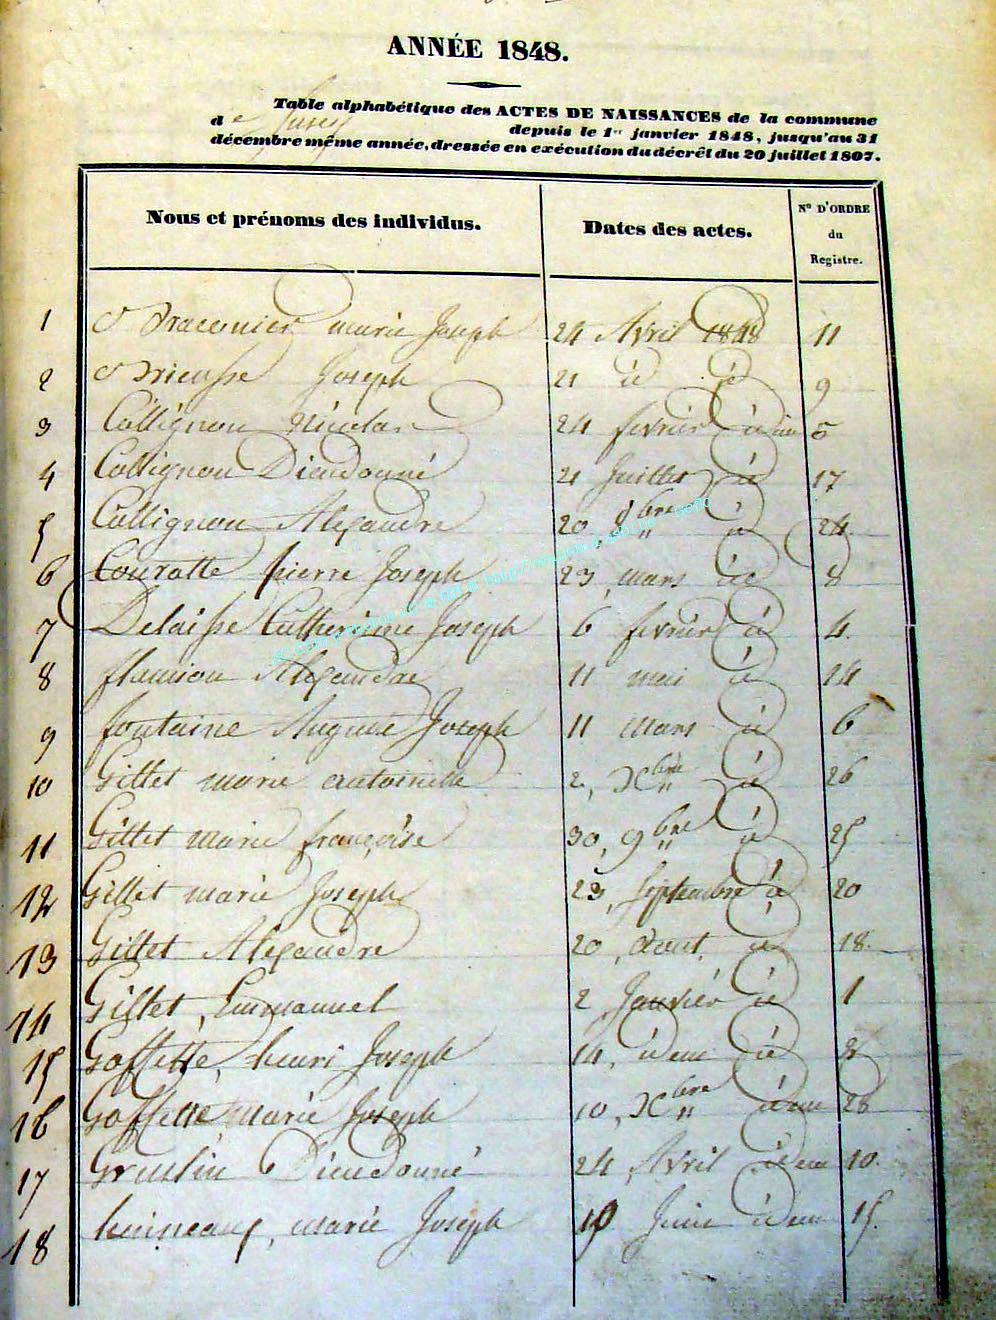 ANNÉE 1848.
Table alphabétique des ACTES DE NAISSANCES de la commune
de depuis le 1er janvier 1848, jusqu'au 31
décembre même année, dressée en exécution du décrêt du 20 juillet 1807.
Nous et prénoms des individus. Dates des actes. No D'ORDRE du Registre.
1 marie Joseph 24 Avril 1848 11
2 Joseph 21 id id 9
3 Collignon Nicolas 24 fevrier idem 5
4 Collignon Dieudonné 21 Juillet id 17
5 Collignon Alexandre 20, 8bre id 24
6 Couratte pierre Joseph 23, mars id 8
7 Delaisse Catherinne Joseph 6 fevrier id 4.
8 flamion Alexandre 11 mai id 14
9 fontaine Auguste Joseph 11 mars id 6
10 Gillet marie antoinette 2, Xbre id 26
11 Gillet marie françoise 30, 9bre id 25
12 Gillet marie Joseph 23, Septembre id 20
13 Gillet Alexandre 20, Aout, id 18.
14 Gillet, Emmanuel 2 Janvier id 1
15 Goffette, henri Joseph 14, idem id
16 Goffette marie Joseph 10, Xbre idem 28
17 Dieudonné 24, Avril idem 10.
18 marie Joseph Juin idem 15.